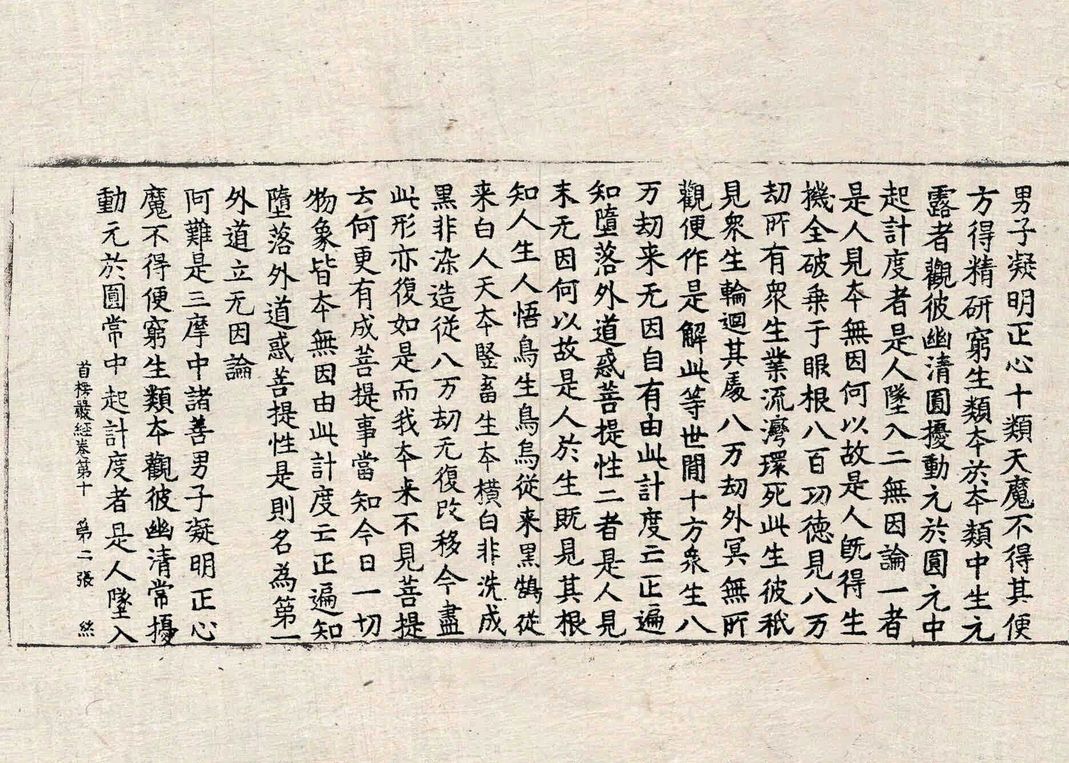 男子凝明正心十類天魔不得其便
方得精研窮生類夲於夲類中生元
露者觀彼幽清圓擾動元於圓元中
起計度者是人墜入二無因論一者
是人見夲無因何以故是人旣得生
機全破乗于眼根八百功徳見八万
劫所有衆生業流灣環死此生彼秪
見衆生輪迴其處八万劫外冥無所
觀便作是解此等世閒十方衆生八
万劫来无因自有由此計度亡正遍
知墮落外道惑菩提性二者是人見
末无因何以故是人於生既見其根
知人生人悟鳥生鳥烏従来黑鵠従
来白人天夲豎畜生夲橫白非洗成
黑非染造従八万劫无復改移今盡
此形亦復如是而我夲来不見菩提
云何更有成菩提事當知今日一切
物象皆夲無因由此計度亡正遍知
墮落外道惑菩提性是則名為第一
外道立无因論
阿難是三摩中諸善男子凝明正心
魔不得便窮生類夲觀彼幽清常擾
動元於圓常中起計度者是人墜入
首楞嚴經卷第十 第二張 絲